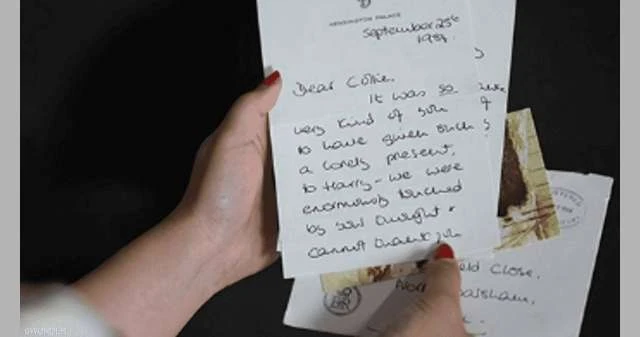 KENSINGTON PALACE
September 25th
1984.
Dear Collie,
It was so
very kind of you
to have given such
a lovely present,
to Harry - we were
enormously touched
by your thought &
cannot thank you
eld Close,
Nor
arsham,